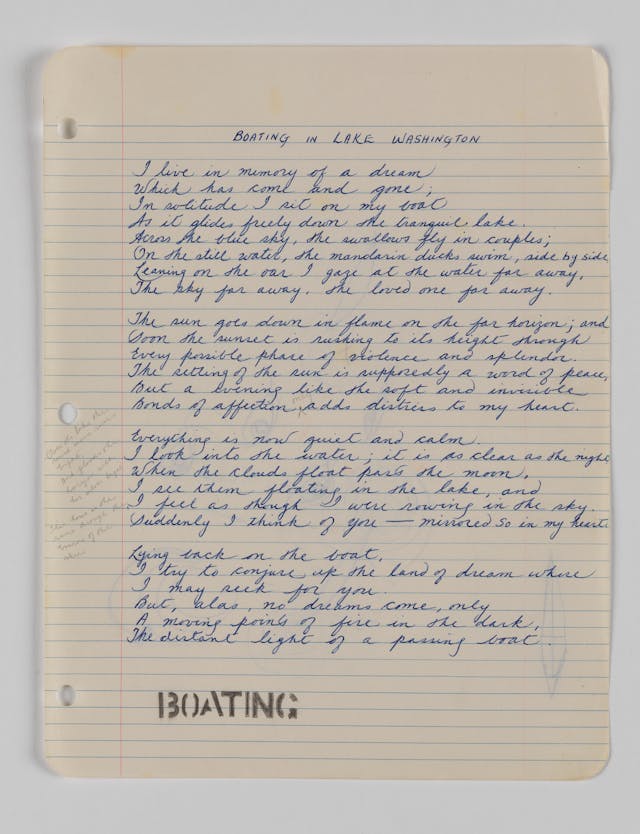 BOATING IN LAKE WASHINGTON
I live in memory of a dream
Which has come and gone;
In solitude I sit on my boat
As it glides freely down the tranquil lake.
Across the blue sky, the swallows fly in couples;
On the still water, the mandarin ducks swim, side by side.
Leaning on the oar I gaze at the water far away,
The sky far away. The loved one far away.
The sun goes down in flame on the far horizon; and
Soon the sunset is rushing to its height through
Every possible phase of violence and splendor.
The setting of the sun is supposedly a word of peace,
But a evening like the soft and invisible
Bonds of affection adds distress to my heart.
Everything is now quiet and calm.
I look into the water; it is as clear as the night.
When the clouds float pass the moon,
I see them floating in the lake, and
I feel as though I were rowing in the sky.
Suddenly I think of you — mirrored so in my heart.
Lying back on the boat,
I try to conjure up the land of dream where
I may seek for you.
But, alas, no dreams come, only
A moving points of fire in the dark,
The distant light of a passing boat.
BOATING